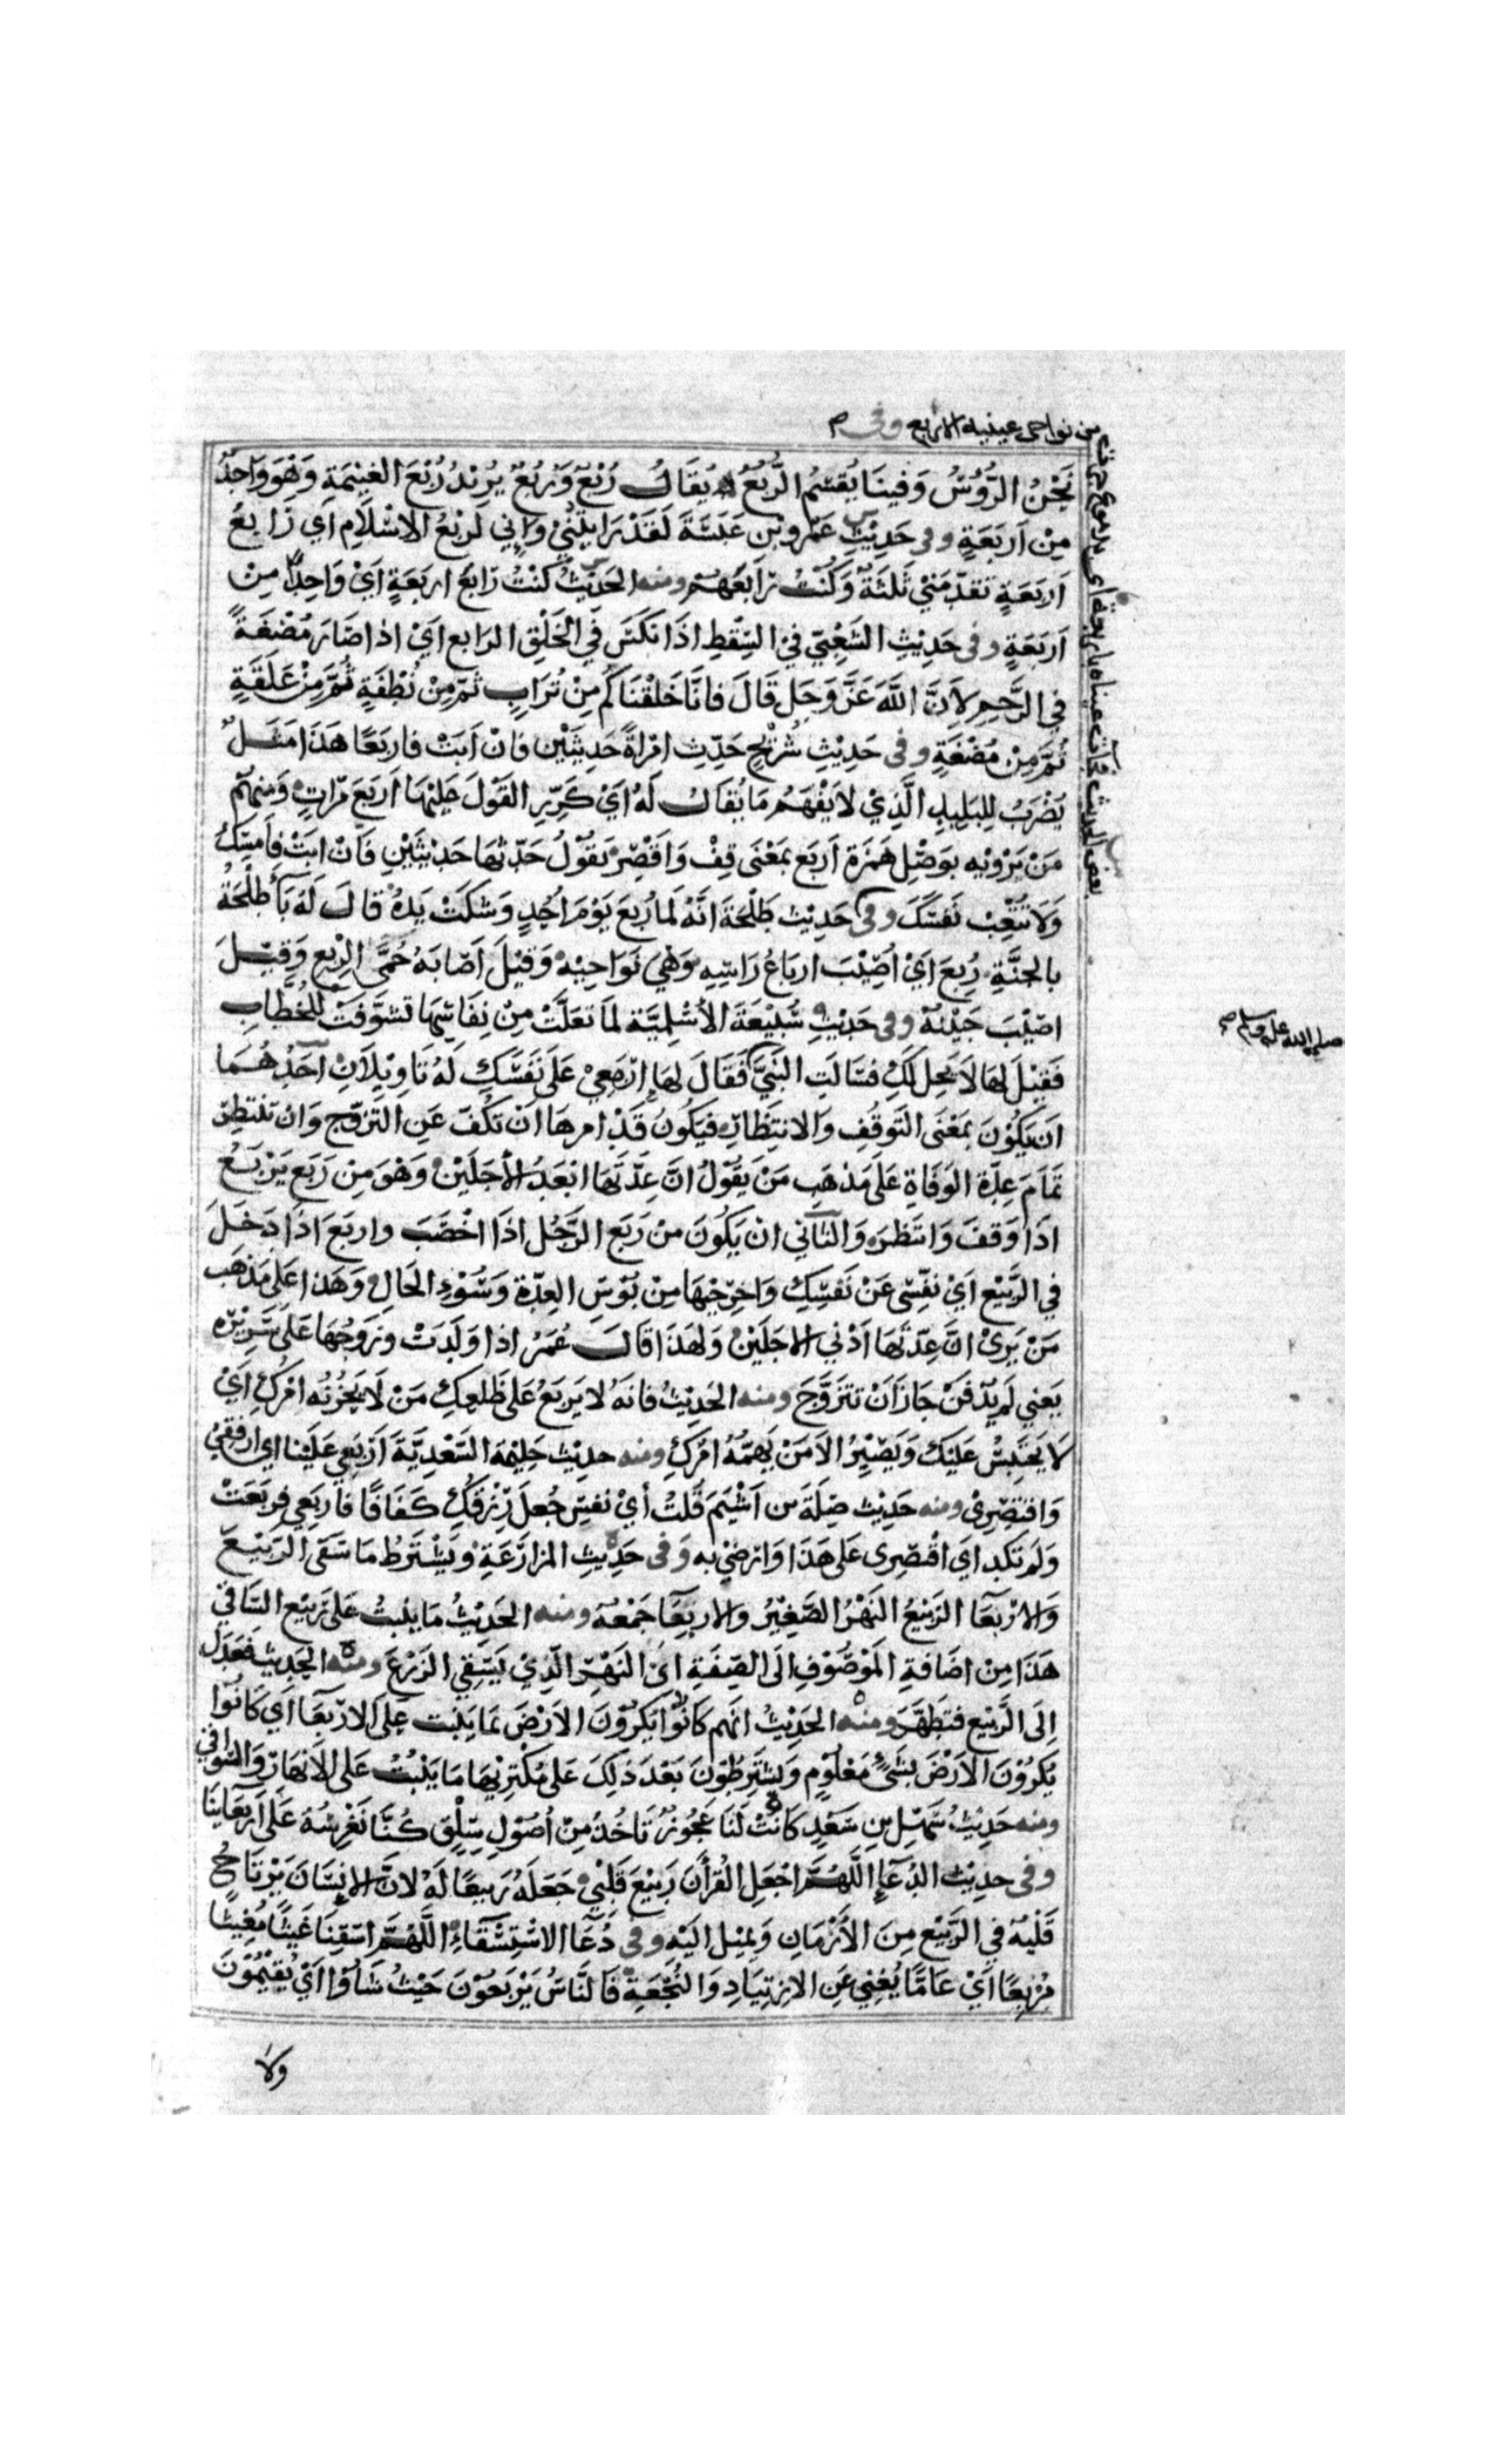 من نواحي عينيه الاربع وفي
نَحْنُ الرُّؤُسُ وَفِينَا يُقْسَمُ الرُّبُعُ يُقَالُ رُبْعٌ وَرُبُعٌ يُرِيْدُ رُبْعَ الغَنِيْمَةِ وَهُوَ وَاحِدٌ
مِنْ اَرْبَعَةٍ وفى حَدِيْثِ عَمْرِو بْنِ عَبَسَةَ لَقَدْ رَايْتُنِيْ وَاِنِي لَرُبْعُ الاِسْلَامِ اَي رَابِعُ
اَرْبَعَةٍ تَقَدَّمَنِيْ ثَلثَةٌ وَكُنْتُ رَابِعَهُمْ ومنه الحَدِيْثُ كُنْتُ رَابِعَ اربَعَةٍ اَيْ وَاحِدًا مِنْ
اَرْبَعَةٍ وفى حَدِيْثِ الشَّعْبِيِّ فِي السِّقْطِ اِذَا نُكِسَ فِي الخَلْقِ الرَابِعِ اَيْ اِذَا صَارَ مُضْغَةً
فِي الرَّحِمِ لِاَنَّ اللَّهَ عَزَّ وَجَلَّ قَالَ فَانَّا خَلَقْنَاكُمْ مِنْ تُرَابٍ ثُمَّ مِنْ نُطْفَةٍ ثُمَّ مِنْ عَلَقَةٍ
ثُمَّ مِنْ مُضْغَةٍ وفى حَدِيْثِ شُرَيْحٍ حَدِّثِ امْرَاَةً حَدِيْثَيْنِ فَانْ اَبَتْ فَاربَعًا هَذَا مَثَلٌ
يُضْرَبُ لِلبَلِيدِ الَّذِيْ لَا يَفْهَمُ مَا يُقَالُ لَهُ اَيْ كَرِّرِ القَوْلَ عَلَيْهَا اَرْبَعَ مَرَّاتٍ وَمِنْهُم
مَنْ يَرْوِيْهِ بِوَصْلِ هَمْزَةِ اَرْبَع بمَعْنَى قِفْ وَاقْصِرْ يَقُوْلُ حَدِّثْهَا حَدِيْثَيْنِ فَانْ ابَتْ فَاَمْسِكْ
وَلَا تُتْعِبْ نَفْسَكَ وفى حَدِيْث طَلْحَةَ انَّهُ لَمَا رُبِعَ يَوْمَ اُحُدٍ وَشَلَتْ يَدُهُ قَالَ لَهُ بَاَ طَلْحَةُ
بالجَنَّةِ رُبِعَ اَيْ اُصِيْبَ اربَاعُ رَاسِهِ وَهِيَ نَوَاحِيْهِ وَقِيْلَ اَصَابَهُ حُمَّى الرِّبْعِ وَقِيْلَ
اصِيْبَ جَبِيْنُهُ وفى حَدِيْثِ سُبَيْعَةَ الأَسْلَمِيَّة لمَا تعَلَّتْ مِنْ نِفَاسِهَا تَشَوَّفَتْ لِلخُطَّابِ
صلى الله عليه وسلم صح
فَقِيْلَ لهَا لَا يَحِلُ لَكِ فَسَالَتِ النَبِيَّ فَقَالَ لهَا اِرْبَعِيْ عَلَى نَفْسِكِ لَهُ تَاوِيْلَانِ اَحَدُهُمَا
اَن يَكُوْنَ بمَعْنَى التَّوَقُفِ وَالانْتِظَارِ فيَكُونُ قَدْ امَرهَا اَنْ تَكُفَّ عَنِ التَزَوُّجِ وَان تَنْتَظِرَ
تَمَامَ عِدَّةِ الوَفَاةِ عَلَى مَذهَبِ مَنْ يَقُوْلُ اِنَّ عِدَّتَهَا ابْعَدُ الأَجَلَيْنِ وَهْوَ مِنْ رَبَعَ يَرْبَعُ
اِذَا وَقَفَ وَانتَظَرَ وَالثَانِي انْ يَكُونَ مِنْ رَبَعَ الرَّجُلُ اِذَا اخْصَبَ واربَعَ اِذَا دَخَلَ
فِي الرَّبِيْعِ اَيْ نَفِّسِى عَنْ نَفْسِكِ وَاخرِجِيْهَا مِنْ بُوْسِ العِدَّةِ وَسُوْءِ الحَالِ وَهَذَا عَلَى مَذهَب
مَنْ يَرَى اَنَّ عِدّتَهَا اَدْنَي الاجَلَيْنِ وَلهَذَا قَالَ عُمَرُ اذا وَلَدَتْ وَزَوجُهَا عَلَى سَرِيْرِه
يَعْني لَم يُدْفَنْ جَازَ اَنْ تَتَزَوَّجَ ومنه الحَدِيْثُ فَانَهُ لا يَرْبَعُ عَلَى ظَلْعِكِ مَنْ لَا يَحْزُنُهُ اَمْرُكِ اَيْ
لَا يَحْتَبِسُ عَلَيْكِ وَيَصْبِرُ اِلاَ مَنْ يَهُمُّهُ امْرُكِ ومنه حديْث حَلِيْمَة السَعْدِيَّةَ اَرْبَعِي عَلَيْنا اي ارفَقِيْ
وَاقتَصِرِىْ ومنه حَدِيْث صِلَةَ بن اَشْيَمَ قُلْتُ أيْ نَفْسِ جُعِلَ رِزْقُكِ كَفَافًا فَاربَعِي فربَعَتْ
وَلَمْ تَكَد اي اقْتَصِرِى عَلَى هَذَا وَارْضَيْ به وَفى حَدِيْثِ المزَارَعَةِ وَيُشْتَرَطُ مَا سَقَى الرَبِيْعُ
وَالارْبِعَآ الرَّبِيْعُ النَهْرُ الصَغِيْرُ وَالاربِعَآ جَمْعُهُ ومنه الحَدِيْثُ مَا يَنْبُتُ عَلَى رَبِيْعِ السَّاقِي
هَذَا مِنْ اضَافَةِ المَوْصُوْفِ الَى الصِّفَةِ اَىِ النَهْرِ الَّذِيْ يَسْقِي الزَرْعَ ومنه الحَدِيث فعَدَلَ
اِلَى الرَّبِيْعِ فَتَطَهَّرَ ومنه الحَدِيْثُ انَهُم كَانُوْا يُكْرُوْنَ الاَرْضَ بمَا يَنْبُت عَلَى الارْبِعَآ اَي كَانُوا
يُكْرُوْنَ الاَرْضَ بشَىْءٍ مَعْلُوْمٍ وَيَشْتَرِطُوْنَ بَعْدَ ذَلِكَ عَلى مُكْتَرِيْهَا مَا يَنْبُتُ عَلى الاَنْهَارِ وَالسَوَاقِي
ومنه حَدِيْثُ سَهْلِ بْنِ سَعْدٍ كَانَتْ لَنَا عَجُوْزٌ تَاخُذُ مِنْ اُصُوْلِ سِلْقٍ كُنَّا نَغْرِسُهُ عَلَى اَرْبِعَاينَا
وفى حدِيْث الدُعَآءِ اللَّهُمَّ اجْعَلِ الْقُرأَنَ رَبِيْعَ قَلْبِيْ جَعَلَهُ رَبِيعًا لَهُ لانَّ الاِنسَانَ يَرْتَاحُ
قَلْبُهُ فِي الرَّبِيْعِ مِنَ الأَزْمَانِ وَيَميْل الَيْهِ وفى دُعَآ الاسْتِسْقَاءِ اللَّهُمَّ اسْقِنَا غَيْثًا مُغِيثًا
مُرْبِعًا اَيْ عَامًّا يُغْنِي عَنِ الارْتِيَادِ وَالنُجْعَةِ فَالنَّاسُ يَرْبَعُوْنَ حَيْثُ شَاؤُا اَيْ يُقِيْمُوْنَ
ولا